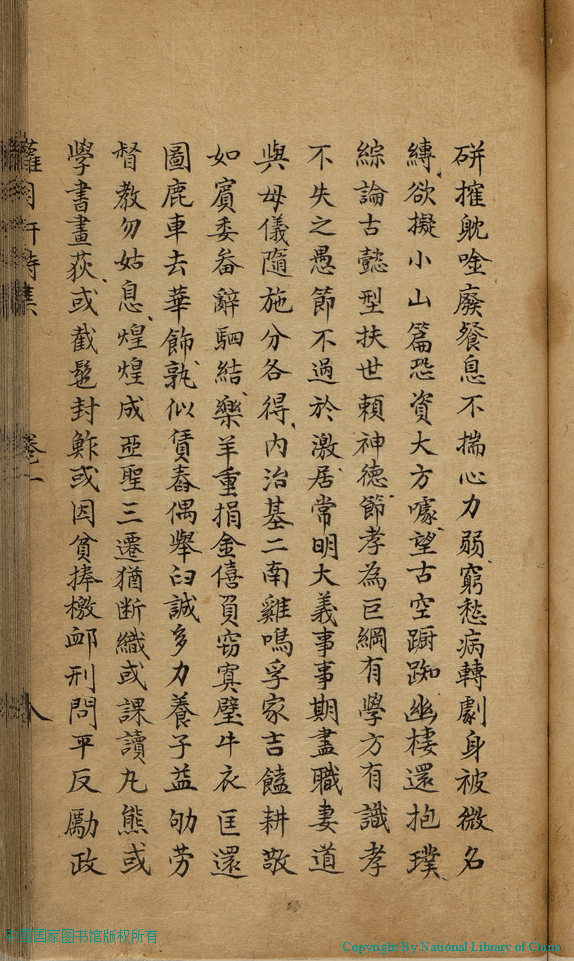 研摧躭唫廢餐息不揣心力弱窮愁病轉劇身被微名
縳欲擬小山篇恐資大方噱望古空踟踟幽棲還抱璞
綜論古懿型扶世賴神德節孝為巨綱有學方有識孝
不失之愚節不過於激居常明大義事事期盡職妻道
與母儀隨施分各得内治基二南雞鳴孚家吉饁耕敬
如賓委畚辭駟結樂羊重捐金僖負窃寘璧牛衣匡還
圖鹿車去華飾孰似賃舂偶舉臼誠多力養子益劬劳
督教勿姑息煌煌成亞聖三遷猶断織或課讀丸熊或
學書畫荻或截髢封鮓或因貧捧檄邮刑問平反勵政
蘿月軒詩集 卷一 八
中国国家图书馆版权所有
Copyright By National Library of China